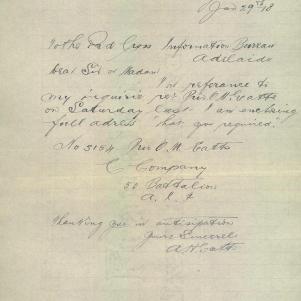 Jan 29th 18
To the Red Cross Information Bureau
Adelaide
Dear Sir or Madam
In referance to
my inquirie per Priv O. M. Catts
on Saturday last I am enclosing
full adress that you required.
No 3154 Priv O. M. Catts
C Company
50 Battalion
A. I. F
Thanking you in antisipation
Yours Sincerel
A H Catts